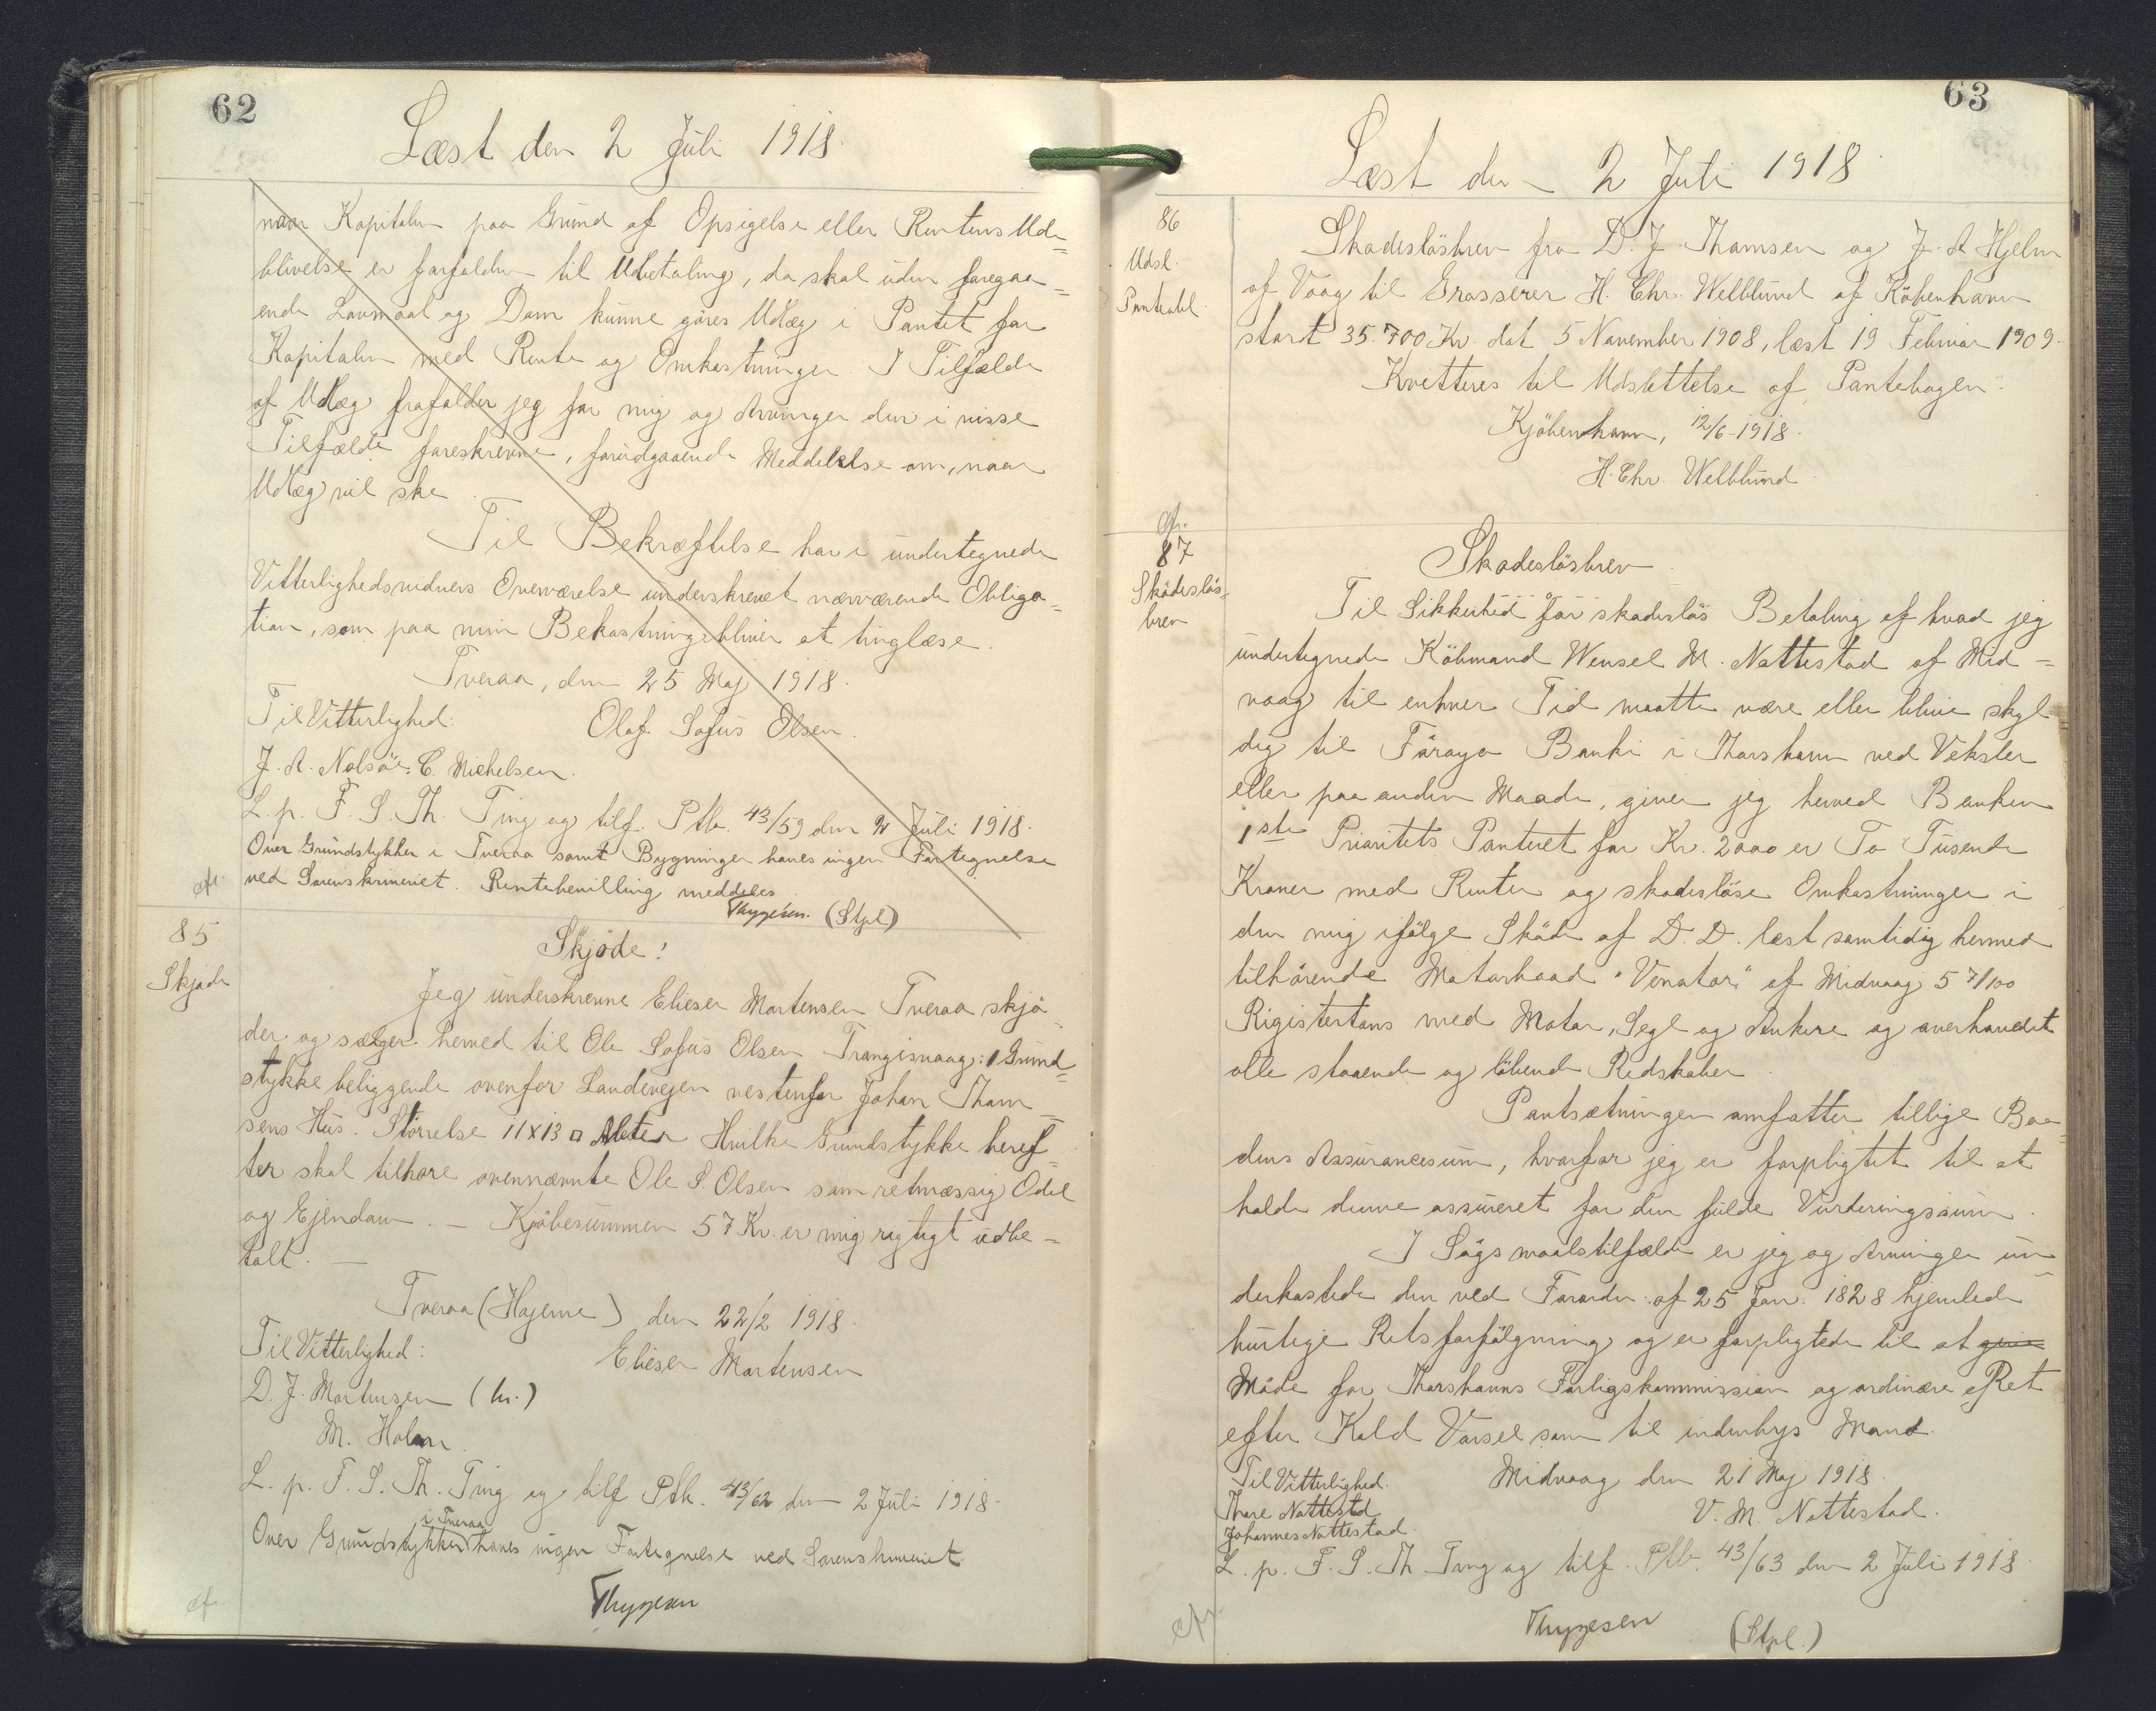 62
Læst den 2 Juli 1918.
naar Kapitalen paa Grund af Opsigelse eller Rentens Ude=
blivelse er forfalden til Udbetaling, da skal uden foregaa=
ende Lovmaal og Dom kunne göres Udlæg i Pantet for
Kapitalen med Rente og Omkostninger. I Tilfælde
af Udlæg frafalder jeg for mig og Arvinger den i visse
Tilfælde foreskrevne, forudgaaende Meddelelse om, naar
Udlæg vil ske.
Til Bekræftelse har i undertegnede
Vitterlighedsvidners Overværelse underskrevet nærværende Obliga=
tion, som paa min Bekostning bliver at tinglæse.
Tveraa, den 25 Maj 1918.
Til Vitterlighed:
Olaf Sofus Olsen.
J. A. Nolsöe. C. Michelsen.
L. p. F. S. Th. Ting og tilf. Ptb. 43/59 den 2 Juli 1918.
Over Grundstykker i Tveraa samt Bygninger haves ingen Fortegnelse
cfr. ved Sorenskriveriet. Rentebevilling meddeles.
Thygesen. (Stpl)
85
Skjøde
Skjöde!
Jeg underskrevne Elieser Mortensen Tveraa skjö=
der og sælger herved til Ole Sofus Olsen Trangisvaag: 1 Grund=
stykke beliggende ovenfor Landevejen vestenfor Johan Thom=
sens Hus. Störrelse 11x13 □ Alen Hvilke Grundstykke heref=
ter skal tilhøre ovennævnte Ole S. Olsen som retmæssig Odel
og Ejendom. — Kjöbesummen 57 Kr. er mig rigtigt udbe=
talt. —
Tveraa (Hojerne) den 22/2 1918.
Til Vitterlighed:
Elieser Mortensen
D. J. Mortensen (hr.)
M. Holm.
L. p. F. S. Th. Ting og tilf Ptb. 43/62 den 2 Juli 1918.
i Tveraa
Over Grundstykker haves ingen Fortegnelse ved Sorenskriveriet.
cfr.
Thygesen
63
Læst den 2 Juli 1918.
86
Udsl.
Panteobl.
Skadeslösbrev fra D. J. Thomsen og J. A Hjelm
af Vaag til Grosserer H. Chr. Welblund af Köbenhavn
stort 35.700 Kr. dat 5 November 1908, læst 19 Februar 1909.
Kvitteres til Udslettelse af Pantebogen.
Kjöbenhavn, 12/6-1918.
H. Chr. Welblund
cfr.
87
Skadeslös=
brev
Skadeslösbrev.
Til Sikkerhed for skadeslös Betaling af hvad jeg
undertegnede Köbmand Wensel M. Nattestad af Mid=
vaag til enhver Tid maatte være eller blive skyl=
dig til Föroya Banki i Thorshavn ved Veksler
eller paa anden Maade, giver jeg herved Banken
1ste Prioritets Panteret for Kr. 2000 er To Tusende
Kroner med Renter og skadeslöse Omkostninger i
den mig ifölge Sköde af D. D. læst samtidig hermed
tilhörende Motorbaad "Venator" af Midvaag 5 7/100
Rigistertons med Motor, Segl og Ankere og overhovedet
alle staaende og löbende Redskaber
Pantsætningen omfatter tillige Baa=
dens Assurancesum, hvorfor jeg er forpligtet til at
holde denne assureret for den fulde Vurderingssum.
I Sögsmaalstilfælde er jeg og Arvinger un=
derkastede den ved Forordn: af 25 Jan. 1828 hjemlede
hurtige Retsforfölgning og er forpligtede til at give
Möde for Thorshavns Forligskommission og ordinære Ret
efter Kald Varsel som til indenbys Mand.
Til Vitterlighed.
Midvaag den 21 Maj 1918.
Thore Nattestad
V. M. Nattestad.
Johannes Nattestad.
L. p. F. S. Th Ting og tilf. Ptb. 43/63 den 2 Juli 1918
cfr.
Thygesen (Stpl.)